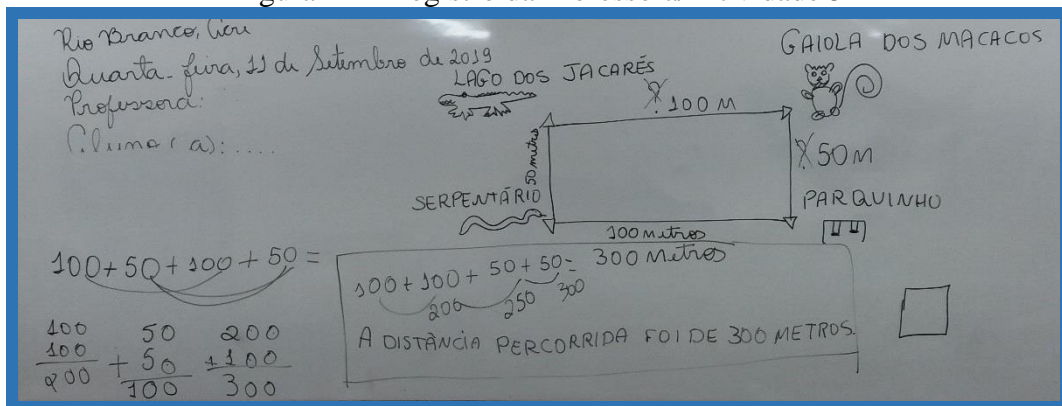 Rio Branco, Acre
Quarta-feira, 11 de Setembro de 2019
Professora:
Aluno (a): ....
LAGO DOS JACARÉS
GAIOLA DOS MACACOS
100 M
50 metros
50 M
SERPENTÁRIO
PARQUINHO
100 metros
100 + 50 + 100 + 50 =
100 + 100 + 50 + 50 = 300 metros
200 250 300
A DISTÂNCIA PERCORRIDA FOI DE 300 METROS.
100 50 200
100 + 50 + 100
200 100 300